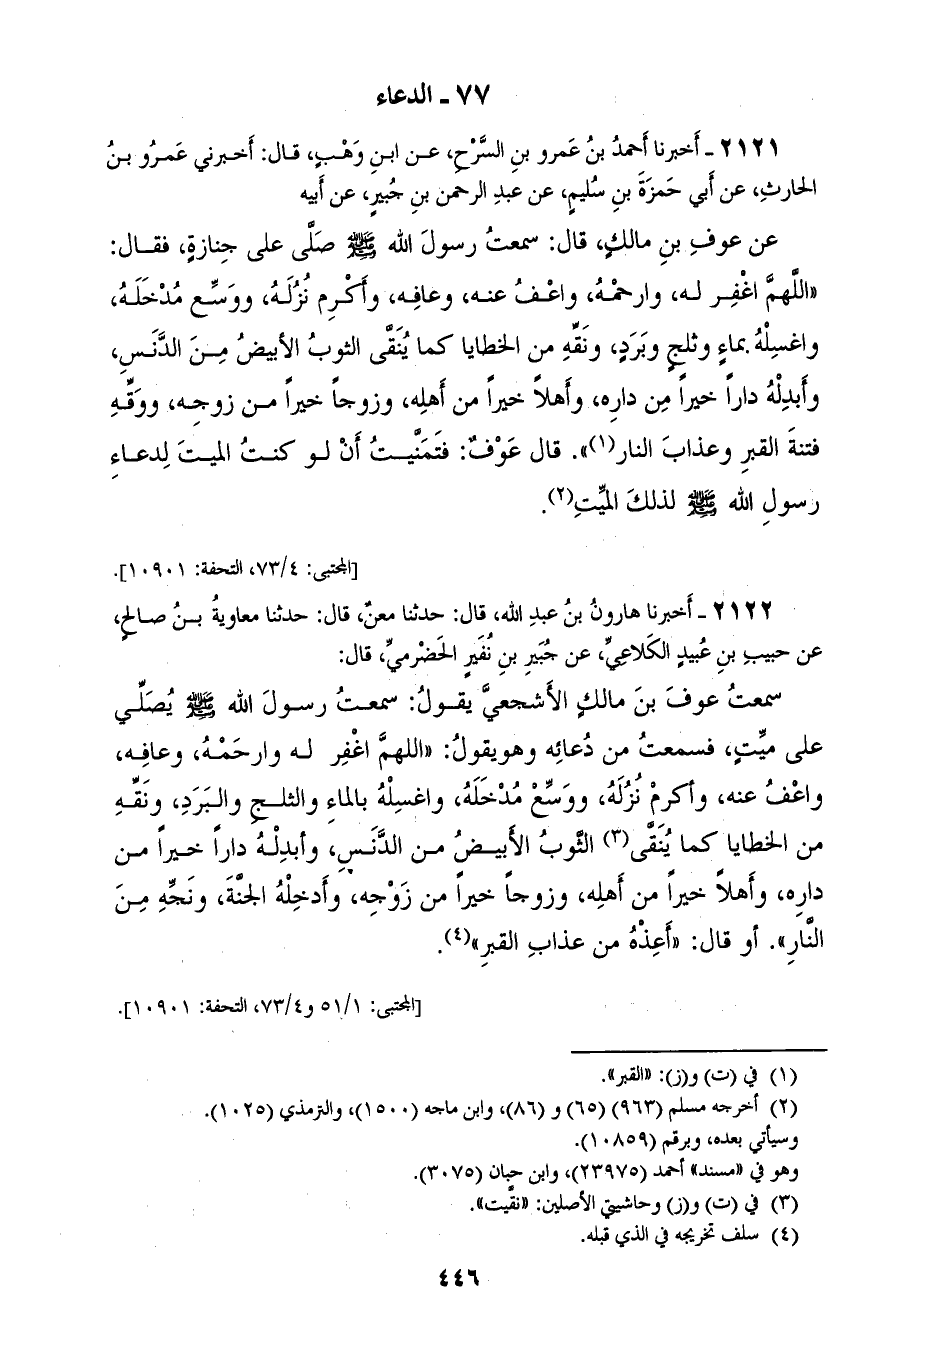 ٧٧ - الدعاء
٢١٢١ - أخبرنا أحمدُ بنُ عَمرو بنِ السَّرْحِ، عـن ابنِ وَهْبٍ، قـال: أخـبرني عَمـرُو بـنُ
الحارثِ، عن أبي حَمزَةَ بنِ سُليمٍ، عن عبدِ الرحمن بنِ جُبيرٍ، عن أبيه
عن عوفِ بنِ مالكٍ، قال: سمعتُ رسولَ الله ﷺ صلَّى على جنازةٍ، فقـال:
«اللَّهمَّ اغْفِـر لـه، وارحمْـهُ، واعْـفُ عنـه، وعافِـه، وأَكْـرِم نُزُلَـهُ، ووَسِّـع مُدْخَلَـهُ،
واغسِلْهُ بماءٍ وثلجٍ وبَرَدٍ، ونَقِّهِ من الخطايا كما يُنَقَّى الثوبُ الأبيضُ مِـنَ الدَّنَـسِ،
وأَبدِلْهُ داراً خيراً مِن دارِه، وأَهلاً خيراً من أَهلِه، وزوجـاً خيراً مـن زوجـه، ووَقِّـهِ
فتنةَ القبرِ وعذابَ النار(١)». قال عَوْفٌ: فتَمَنَّيـتُ أَنْ لـو كنـتُ الميـتَ لِدعـاءِ
رسولِ الله ﷺ لذلكَ الميِّتِ(٢).
[المجتبى: ٧٣/٤، التحفة: ١٠٩٠١].
٢١٢٢ - أَخبرنا هارونُ بنُ عبدِ الله، قال: حدثنا معنٌ، قال: حدثنا معاويةُ بـنُ صـالحٍ،
عن حبيبِ بنِ عُبيدٍ الكَلاعِيِّ، عن جُبَيرِ بنِ نُفَيرٍ الحَضْرميِّ، قال:
سمعتُ عوفَ بنَ مالكٍ الأشجعيَّ يقـولُ: سمعـتُ رسـولَ الله ﷺ يُصَلِّـي
على ميِّتٍ، فسمعتُ من دُعائِه وهويقولُ: «اللهمَّ اغْفِر له وارحَمْـهُ، وعافِـه،
واعْفُ عنه، وأكرِمْ نُزُلَهُ، ووَسِّعْ مُدْخَلَهُ، واغسِلْهُ بالماءِ والثلـجِ والـبَرَدِ، ونَقِّـهِ
من الخطايا كما يُنَقَّى(٣) الثَّوبُ الأَبيـضُ مـن الدَّنَـسِ، وأبدِلْـهُ داراً خـيراً مـن
دارِه، وأَهلاً خيراً من أَهلِه، وزوجـاً خيراً من زَوْجِه، وأَدخِلْهُ الجنَّةَ، ونَجِّهِ مِـنَ
النَّارِ». أو قال: «أَعِذْهُ من عذابِ القبرِ»(٤).
[المجتبى: ٥١/١ و٧٣/٤، التحفة: ١٠٩٠١].
(١) في (ت) و(ز): «القبر».
(٢) أخرجه مسلم (٩٦٣) (٦٥) و (٨٦)، وابن ماجه (١٥٠٠)، والترمذي (١٠٢٥).
وسيأتي بعده، وبرقم (١٠٨٥٩).
وهو في «مسند» أحمد (٢٣٩٧٥)، وابن حبَّان (٣٠٧٥).
(٣) في (ت) و(ز) وحاشيتي الأصلين: «نقَّيت».
(٤) سلف تخريجه في الذي قبله.
٤٤٦